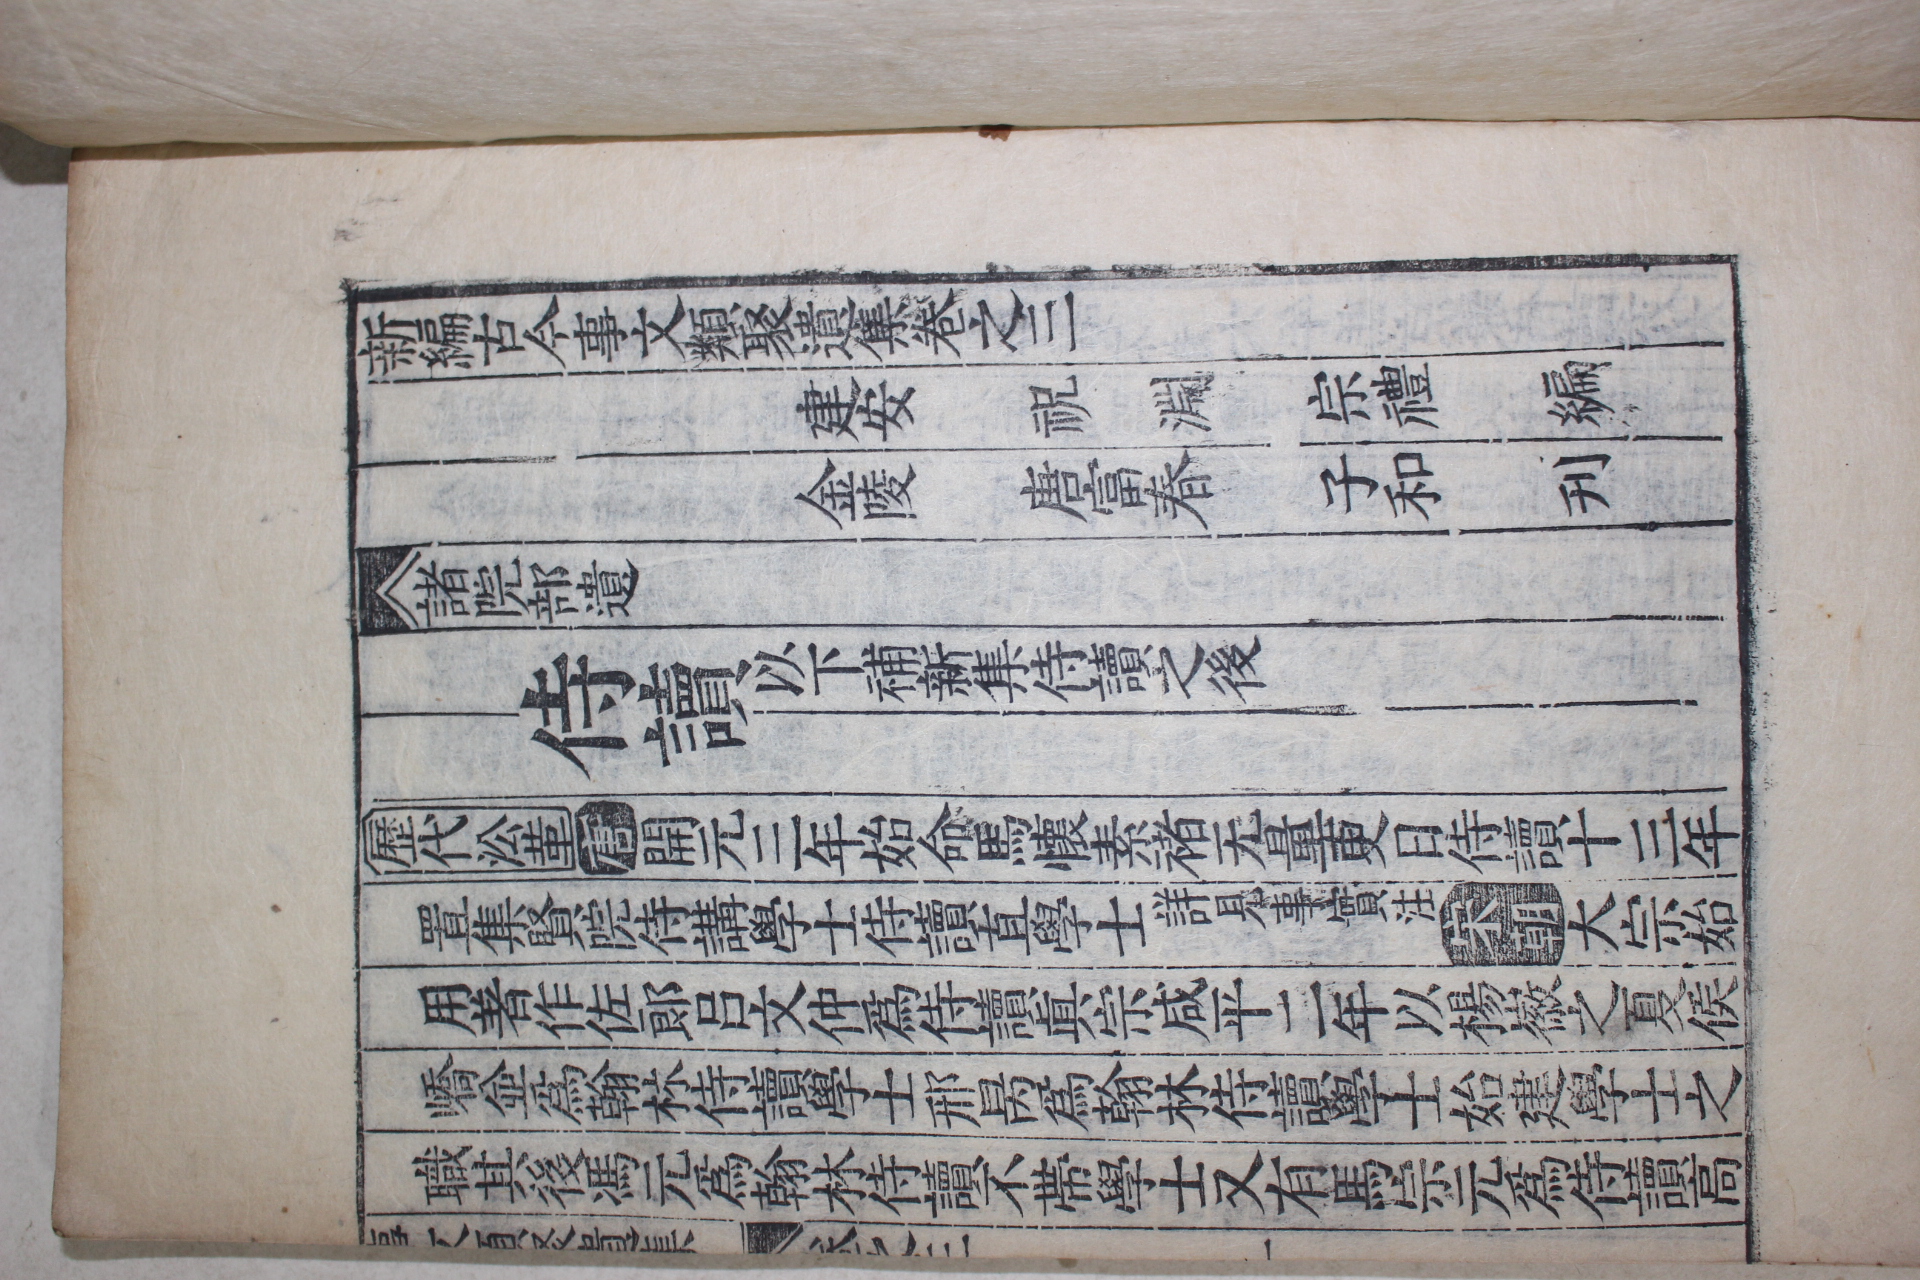 新編古今事文類聚遺集卷之三
建安 祝淵 宗禮 編
金陵 唐富春 子和 刋
諸院部遺
侍讀以下補新集侍讀之後
歷代沿革 唐 開元三年始命馬懷素禇无量更日侍讀十三年
置集賢院侍講學士侍讀直學士詳見事實注 宋朝 太宗始
用著作佐郎呂文仲爲侍讀眞宗咸平二年以楊徽之夏侯
嶠並爲翰林侍讀學士邢昺爲翰林侍講學士始建學士之
職其後馮元爲翰林侍讀不帶學士又有馬宗元爲侍讀高
事文類聚遺集 卷之三 一